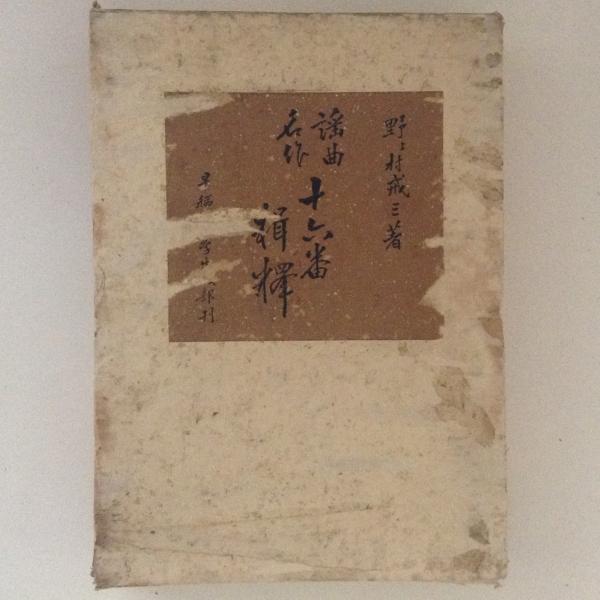 野々村戒三著
謡曲
名作
十六番
輯釋
早稲 学 部刊